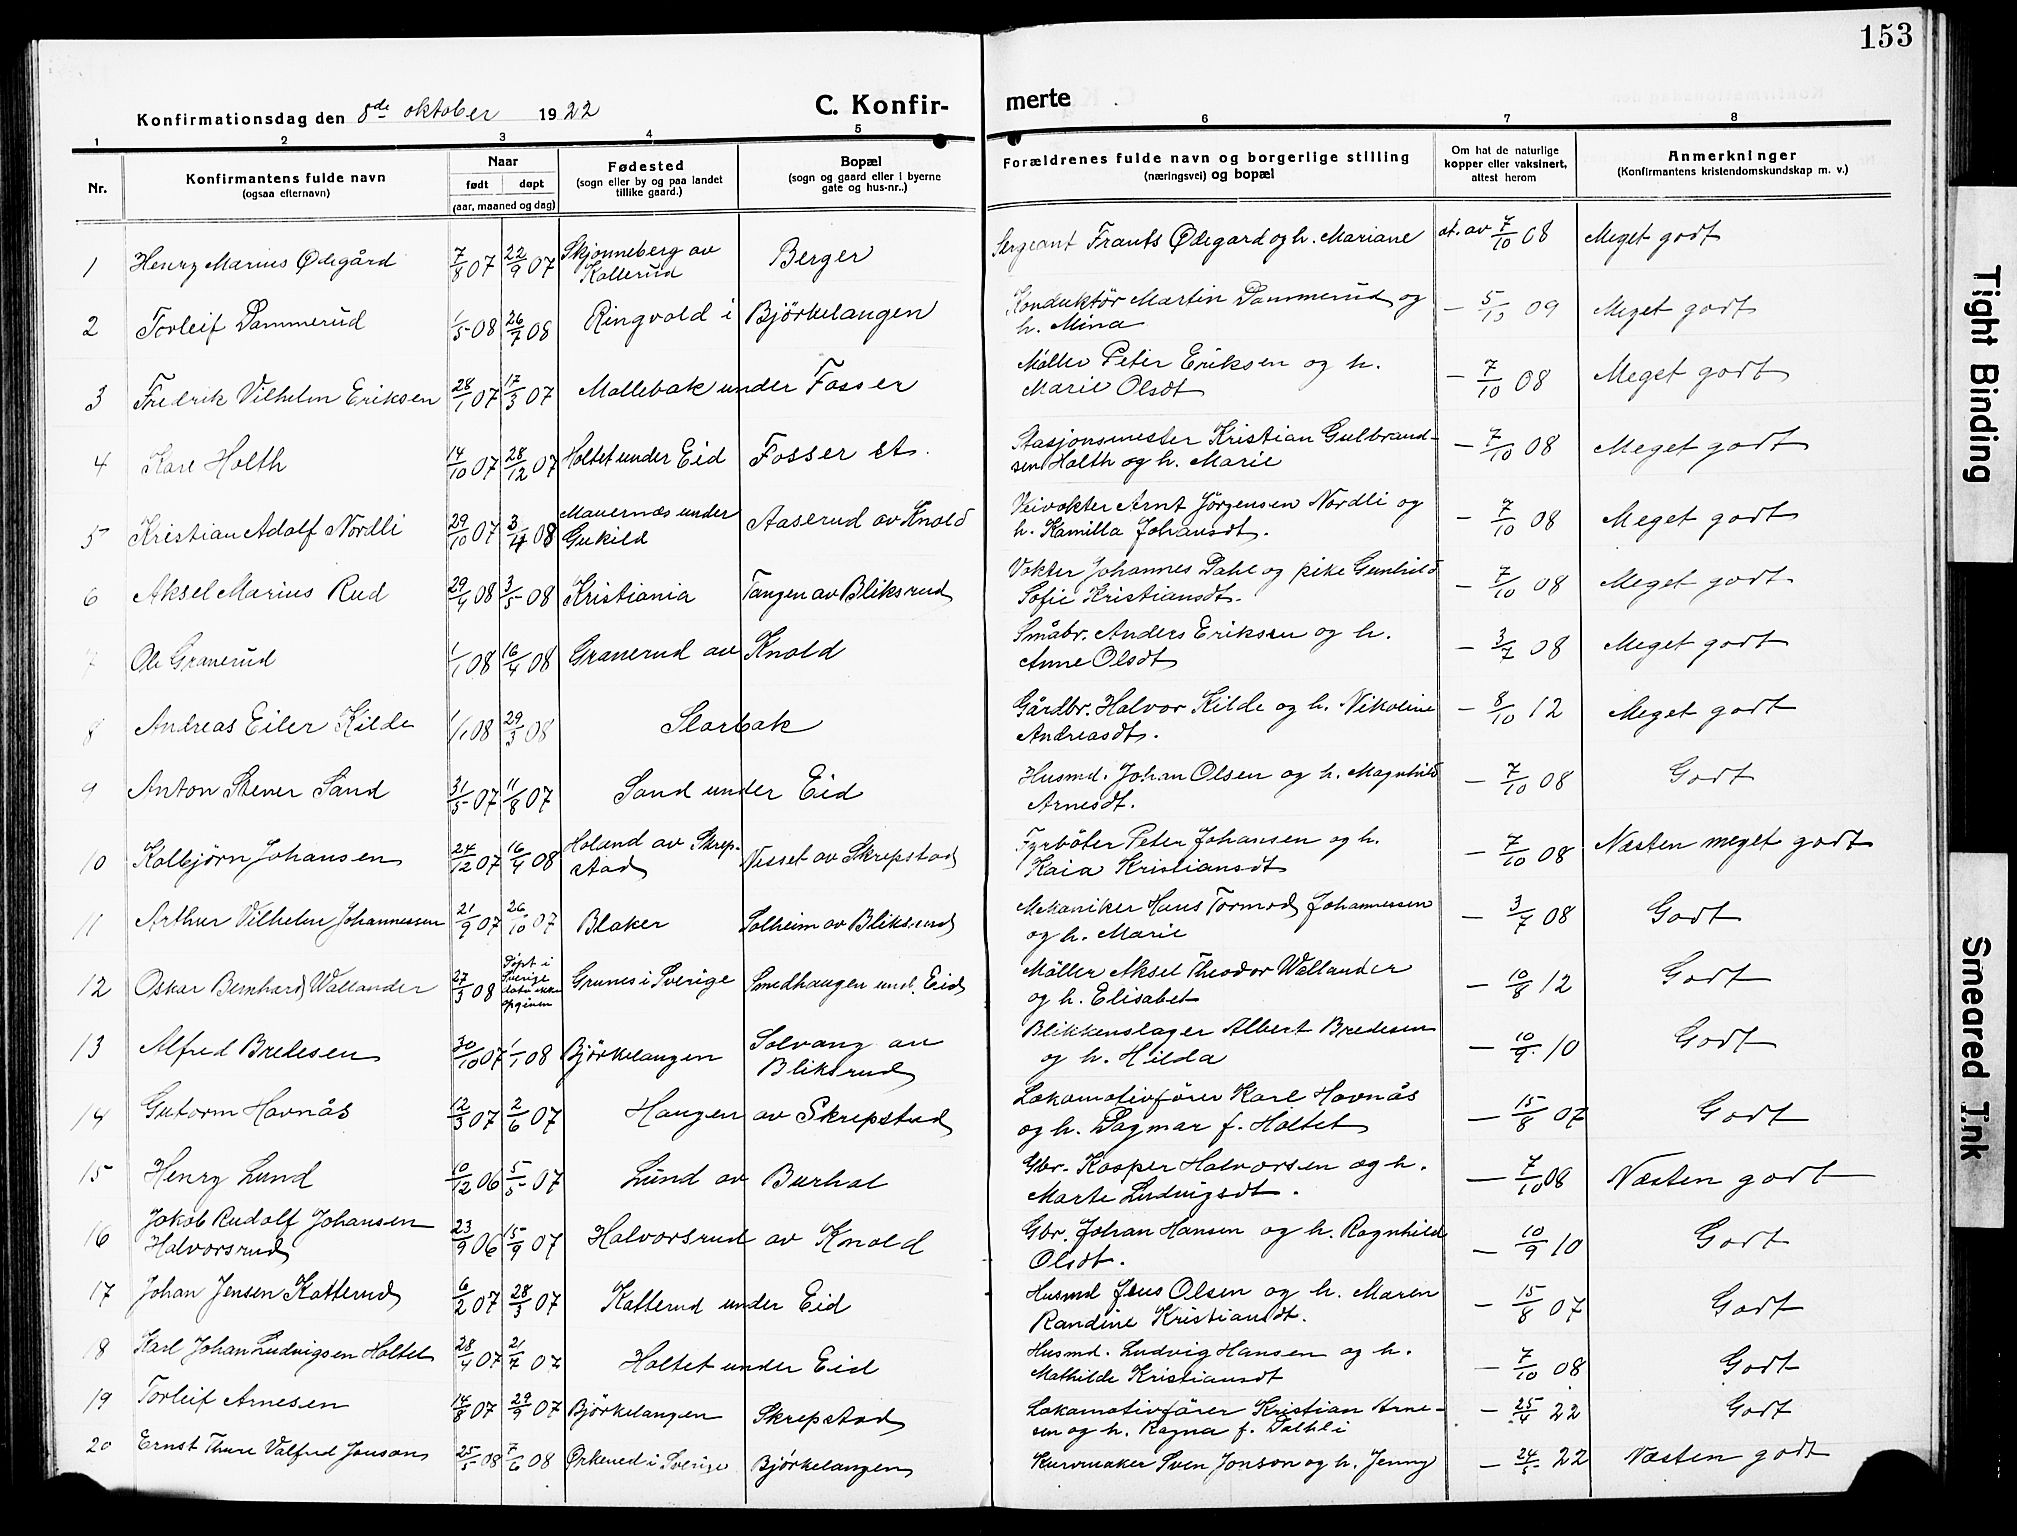 153
Konfirmationsdag den 8de oktober 1922
C. Konfir-merte
1 2 3 4 5 6 7 8
Nr.
Konfirmantens fulde navn
(ogsaa efternavn)
Naar
født døpt
(aar, maaned og dag)
Fødested
(sogn eller by og paa landet
tillike gaard.)
Bopæl
(sogn og gaard eller i byerne
gate og hus-nr.)
Forældrenes fulde navn og borgerlige stilling
(næringsvei) og bopæl
Om hat de naturlige
kopper eller vaksinert,
attest herom
Anmerkninger
(Konfirmantens kristendomskundskap m. v.)
1 Henry Marius Ødegård 7/8 07 22/9 07 Skjønneberg av Kollerud Berger Sergeant Frants Ødegard og h. Mariane at. av 7/10 08 Meget godt
2 Torleif Dammerud 1/5 08 26/7 08 Ringvold i Bjørkelangen Konduktör Martin Dammerud og h. Mina – 5/10 09 Meget godt
3 Fredrik Vilhelm Eriksen 28/1 07 17/3 07 Mollebak under Fosser Möller Peter Eriksen og h. Marie Olsdt – 7/10 08 Meget godt
4 Kare Holth 14/10 07 28/12 07 Holtet under Eid Fosser st. Stasjonsmester Kristian Gulbrandsen Holth og h. Marie – 7/10 08 Meget godt
5 Kristian Adolf Nordli 29/10 07 3/4 08 Mauernæs under Gukild Aaserud av Knold Veivokter Arnt Jörgensen Nordli og h. Kamilla Johansdt. – 7/10 08 Meget godt
6 Aksel Marius Rud 29/4 08 3/5 08 Kristiania Tangen av Bliksrud Vokter Johannes Dahl og pike Gunhild Sofie Kristiansdt. – 7/10 08 Meget godt
7 Ole Granerud 1/1 08 16/4 08 Granerud av Knold Småbr. Anders Eriksen og h. Anne Olsdt – 3/7 08 Meget godt
8 Andreas Eiler Kilde 1/1 08 29/3 08 Slorbak Gårdbr. Halvor Kilde og h. Nikoline Andreasdt. – 8/10 12 Meget godt
9 Anton Stener Sand 31/5 07 11/8 07 Sand under Eid Husmd. Johan Olsen og h. Magnhild Arnesdt. – 7/10 08 Godt
10 Kolbjörn Johansen 24/12 07 16/4 08 Holund av Skrepstad Nesset av Skrepstad Fyrböter Peter Johansen og h. Kaia Kristiansdt – 7/10 08 Næsten meget godt
11 Arthur Vilhelm Johannessen 21/9 07 26/10 07 Blaker Solheim av Bliksrud Mekaniker Hans Tormod Johannessen og h. Marie – 3/7 08 Godt
12 Oskar Bernhard Wallander 27/3 08 Døpt i Sverige dato ikke opgiven Grums i Sverige Smedhaugen und. Eid Möller Aksel Theodor Wallander og h. Elisabet – 10/8 12 Godt
13 Alfred Bredesen 30/10 07 1/1 08 Björkelangen Solvang av Bliksrud Blikkenslager Albert Bredesen og h. Hilda – 10/9 10 Godt
14 Gutorm Havnås 12/3 07 2/6 07 Haugen av Skrepstad Lokomotivförer Karl Havnås og h. Dagmar f. Holtet – 15/8 07 Godt
15 Henry Lund 10/12 06 5/5 07 Lund av Burhol Gbr. Kasper Halvorsen og h. Marte Ludvigsdt. – 7/10 08 Næsten godt
16 Jakob Rudolf Johansen Halvorsrud 23/9 06 15/9 07 Halvorsrud av Knold Gbr. Johan Hansen og h. Ragnhild Olsdt. – 10/9 10 Godt
17 Johan Jensen Katterud 6/2 07 28/3 07 Katterud under Eid Husmd Jens Olsen og h. Maren Randine Kristiansdt. – 15/8 07 Godt
18 Karl Johan Ludvigsen Holtet 28/4 07 21/7 07 Holtet under Eid Husmd. Ludvig Hansen og h. Mathilde Kristiansdt – 7/10 08 Godt
19 Torleif Arnesen 14/8 07 29/9 07 Björkelangen Skrepstad Lokomotivförer Kristian Arnesen og h. Ragna f. – 25/4 22 Godt
20 Ernst Thure Valfred Jonsson 25/5 08 7/6 08 Örkened i Sverige Bjørkelangen Kurvmaker Sven Jonson og h. Jenny – 24/5 22 Næsten godt
Tight Binding
Smeared Ink